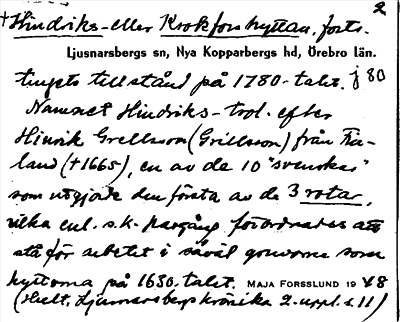 2
+Hindriks- eller Krokforshyttan, forts.
Ljusnarsbergs sn, Nya Kopparbergs hd, Örebro län.
tingets tillstånd på 1780-talet. j 80
Namnet Hindriks- trol. efter
Hinrik Grellsson (Grillsson) från Fin-
land (+1665), en av de 10 "svenskar"
som utgjorde den första av de 3 rotar,
vilka enl. s.k. pargång förordnades att
stå för arbetet i såväl gruvorna som
hyttorna på 1630-talet. MAJA FORSSLUND 19 48
(Hult, Ljusnarsbergskrönika 2. uppl. s. 11)